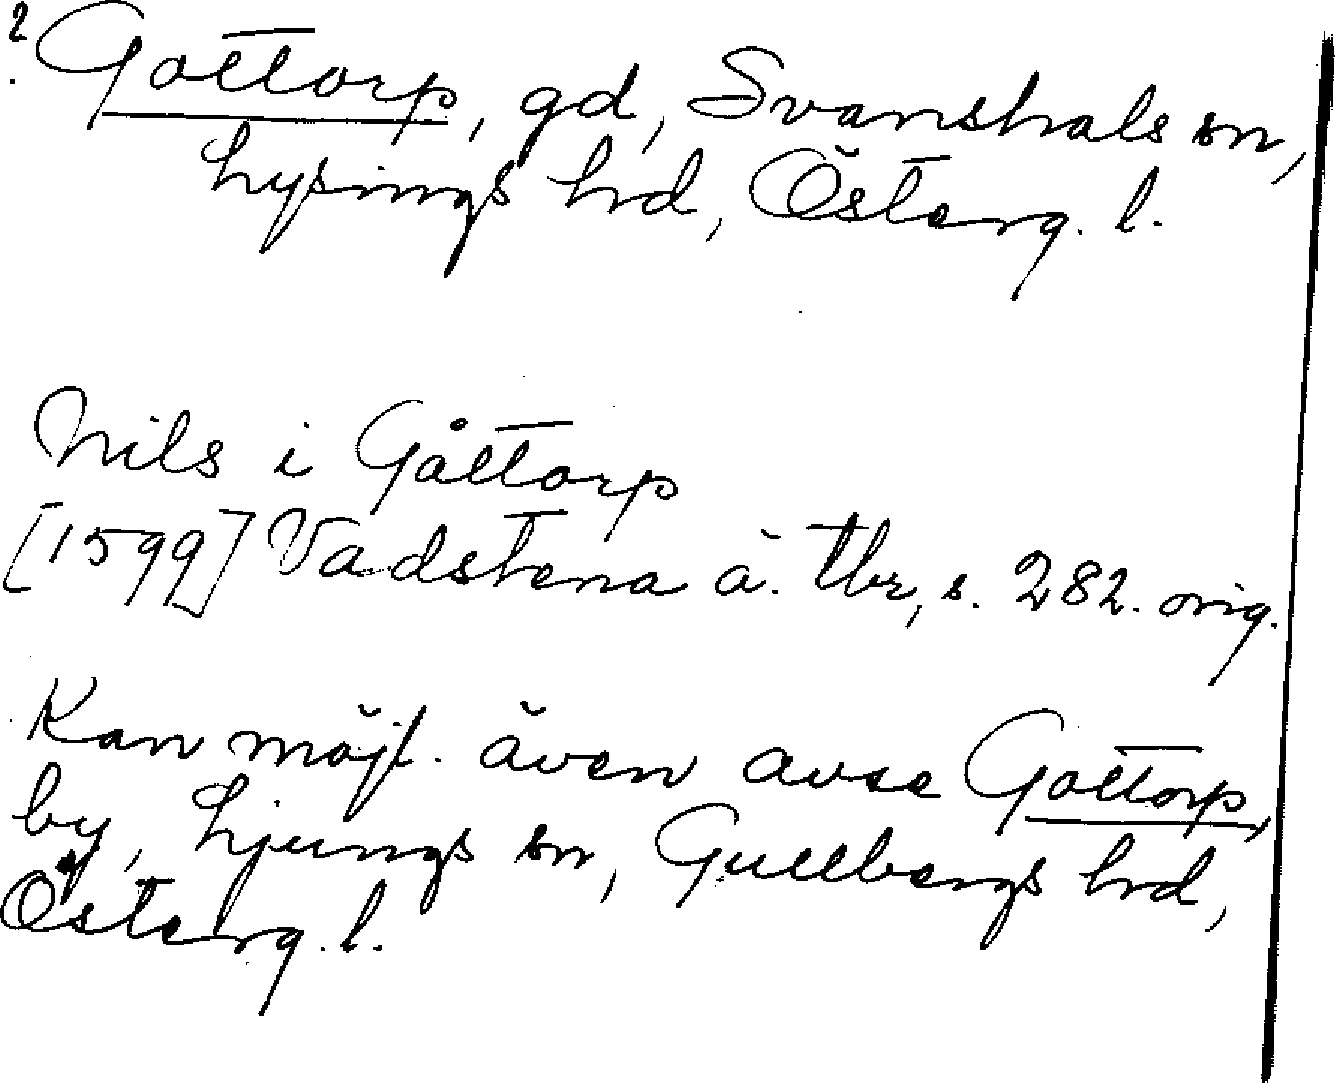 ? Gottorp, gd, Svanshals sn,
Lysings hrd, Österg. l.
Nils i Gåttorp
[1599] Vadstena ä. tbr, s. 282. orig.
Kan möjl. även avse Gottorp,
by, Ljungs sn, Gullbergs hrd,
Österg. l.